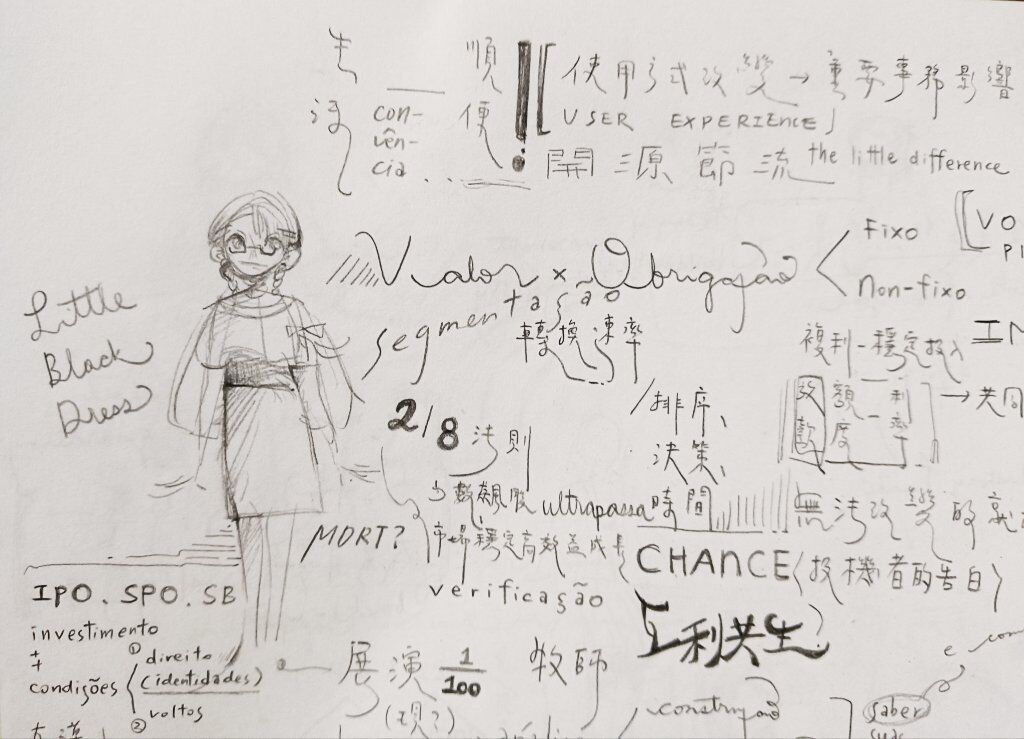 生活
con-
vên-
cia...
順便
使用方式改變→重要事務影響
USER EXPERIENCE
開源節流 the little difference
Valor × Obrigação
Fixo
Non-fixo
segmentação
轉換速率
Little
Black
Dress
2/8法則
排序、
決策、
複利-穩定投入
額度-利率
→共同
少數飆股 ultrapassa 時間
市場穩定高效益成長
verificação
無法改變的
MORT?
CHANCE(投機者的告白)
互利共生?
IPO.SPO.SB
investimento
++
condições
① direito
(identidades)
voltos
②
展演 1/100 教師
(現?)
construção
saber
suas
e